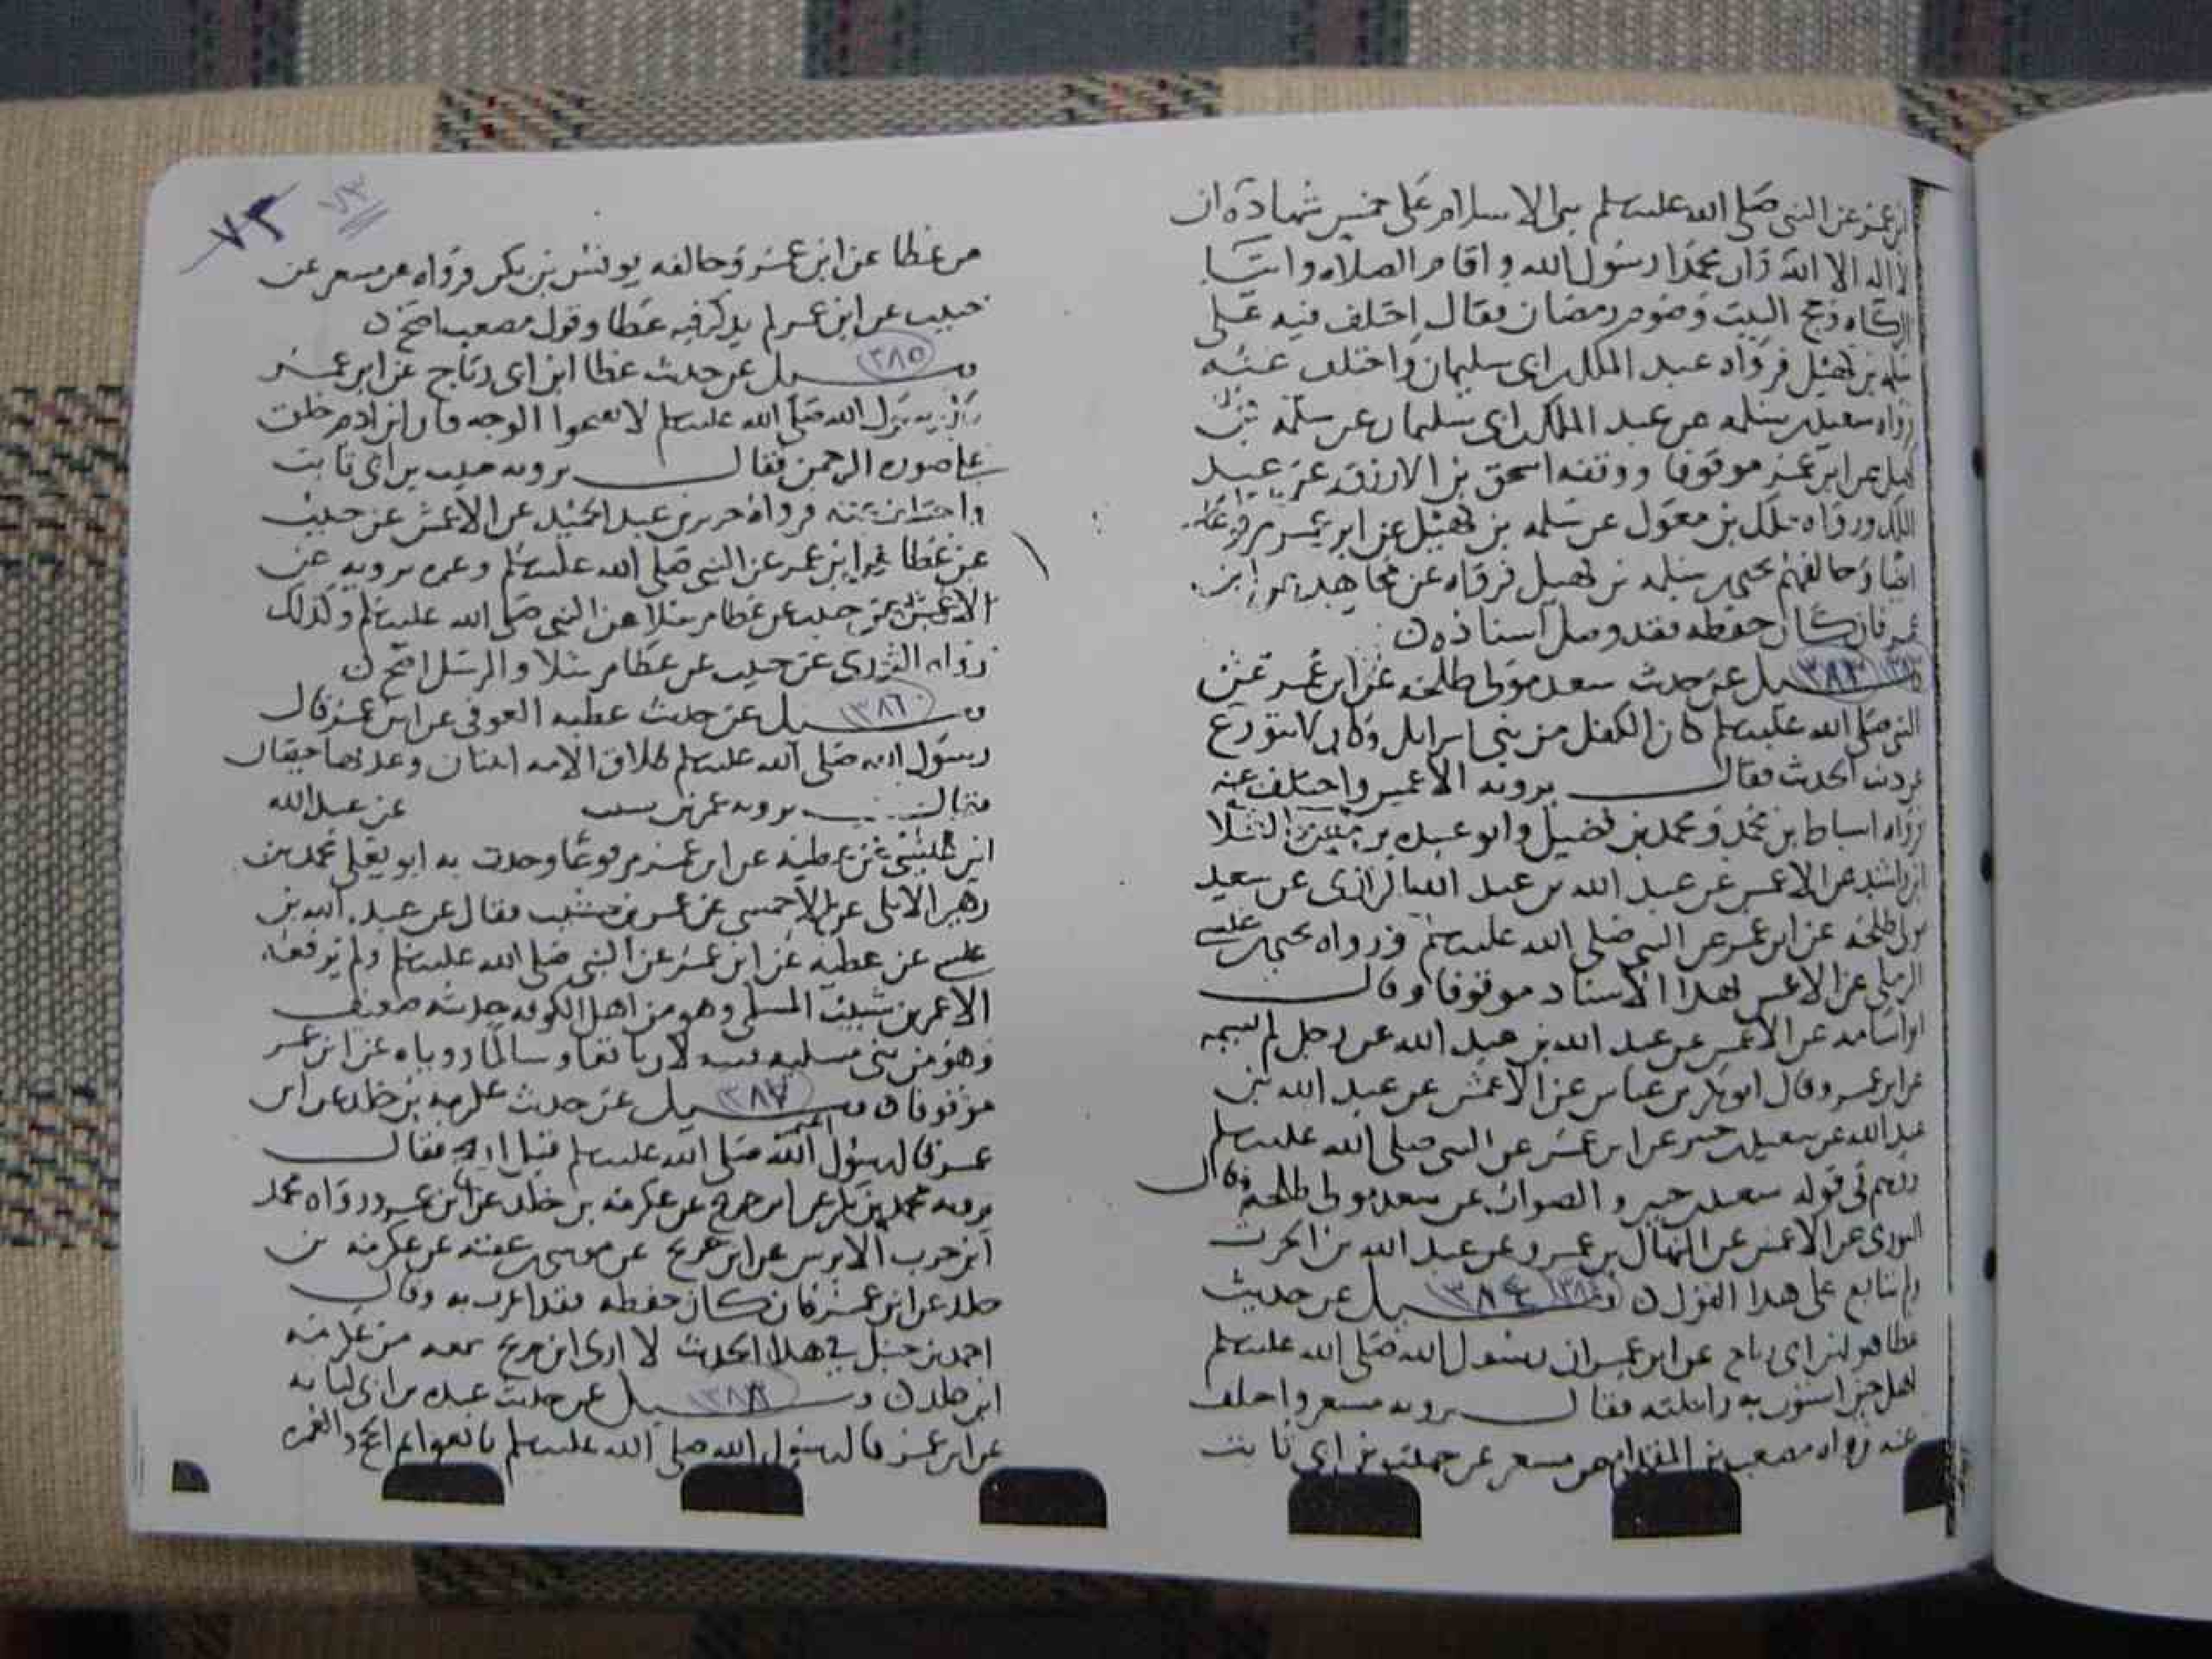 ابن عمر عن النبي صلى الله عليه وسلم بني الاسلام على خمس شهادة ان
لا اله الا الله وان محمدا رسول الله واقام الصلاه وايتا
الزكاه وحج البيت وصوم رمضان فقال اختلف فيه على
سلمه بن كهيل فرواه عبد الملك بن ابي سليمان واختلف عنه
رواه سعيد بن سلمه عن عبد الملك بن ابي سليمان عن سلمة بن
كهيل عن ابن عمر موقوفا ووقفه اسحق بن الازرق عن عبد
الملك ورواه ملك بن مغول عن سلمه بن كهيل عن ابن عمر مرفوعا
ايضا وخالفهم يحيى بن سلمه بن كهيل فرواه عن مجاهد عن ابن
عمر فان كان حفظه فقد وصل اسناده ن
٣٨٣ وسيل عن حديث سعد مولى طلحه عن ابن عمر عن
النبي صلى الله عليه وسلم كان الكفل من بني اسرايل وكان لا يتورع
عن ذنب الحديث فقال يرويه الاعمش واختلف عنه
فرواه اسباط بن محمد ومحمد بن فضيل وابو عبيده بن معن
عن الاعمش عن عبد الله بن عبد الله الرازي عن سعد
مولى طلحه عن ابن عمر عن النبي صلى الله عليه وسلم ورواه يحيى بن عيسى
الرملي عن الاعمش بهذا الاسناد موقوفا وقال
ابو اسامه عن الاعمش عن عبد الله بن عبد الله عن رجل لم يسمه
عن ابن عمر وقال ابو بكر بن عياش عن الاعمش عن عبد الله بن
عبد الله عن سعيد بن جبير عن ابن عمر عن النبي صلى الله عليه وسلم
ووهم في قوله سعيد بن جبير والصواب عن سعد مولى طلحة وقال
الثوري عن الاعمش عن المنهال بن عمرو عن عبد الله بن الحرث
ولم يتابع على هذا القول ن ٣٨٤ وسيل عن حديث
عطا هو ابن ابي رباح عن ابن عمر ان رسول الله صلى الله عليه وسلم
اهل حين استوت به راحلته فقال يرويه مسعر واختلف
عنه فرواه مصعب بن المقدام عن مسعر عن حبيب بن ابي ثابت
٧٣
عن عطا عن ابن عمر وخالفه يونس بن بكير فرواه عن مسعر عن
حبيب عن ابن عمر لم يذكر فيه عطا وقول مصعب اصح ن
٣٨٥ وسيل عن حديث عطا ابن ابي رباح عن ابن عمر
قال رسول الله صلى الله عليه وسلم لا تقبحوا الوجه فان ابن ادم خلق
على صوره الرحمن فقال يرويه حبيب بن ابي ثابت
واختلف عنه فرواه جرير بن عبد الحميد عن الاعمش عن حبيب
عن عطا عن ابن عمر عن النبي صلى الله عليه وسلم وغيره يرويه عن
الاعمش عن حبيب عن عطا مرسلا عن النبي صلى الله عليه وسلم وكذلك
رواه الثوري عن حبيب عن عطا مرسلا والمرسل اصح ن
٣٨٦ وسيل عن حديث عطيه العوفي عن ابن عمر قال
رسول الله صلى الله عليه وسلم طلاق الامه اثنتان وعدتها حيضتان
فقال يرويه عمر بن شبيب عن عبد الله
ابن عيسى عن عطيه عن ابن عمر مرفوعا وحدث به ابو يعلى محمد بن
زهير الابلي عن الاحمسي عن عمر بن شبيب فقال عن عبد الله بن
عيسى عن عطيه عن ابن عمر عن النبي صلى الله عليه وسلم ولم يرفعه
الا عمر بن شبيب المسلي وهو من اهل الكوفه حديثه ضعيف
وهو من بني مسليه لان نافعا وسالما روياه عن ابن عمر
موقوفا ن ٣٨٧ وسيل عن حديث عكرمه بن خالد عن ابن
عمر قال رسول الله صلى الله عليه وسلم فقال
يرويه محمد بن بكر عن ابن جريج عن عكرمه بن خلد عن ابن عمر ورواه محمد
ابن حرب الابرش عن ابن جريج عن موسى بن عقبه عن عكرمه بن
خلد عن ابن عمر فان كان حفظه فقد اغرب به وقال
احمد بن حنبل في هذا الحديث لا ارى ابن جريج سمعه من عكرمه
ابن خلد ن ٣٨٨ وسيل عن حديث عبده بن ابي لبابه
عن ابن عمر قال رسول الله صلى الله عليه وسلم تابعوا بين الحج والعمره